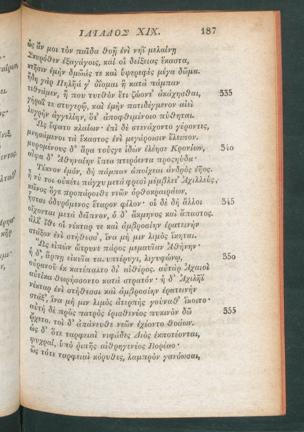 ΙΛΙΑΔΟΣ XIX. 187
ὡς ἄν μοι τὸν παῖδα θοῇ ἐνὶ νηῒ μελαίνῃ
Σκυρόθεν ἐξαγάγοις, καί οἱ δείξειας ἕκαστα,
κτῆσιν ἐμὴν δμῶάς τε καὶ ὑψερεφὲς μέγα δῶμα.
ἤδη γὰρ Πηλῆά γ᾽ ὀΐομαι ἢ κατὰ πάμπαν
τεθνάμεν, ἤ που τυτθὸν ἔτι ζώοντ᾽ ἀκάχησθαι, 335
γήραΐ τε στυγερῷ, καὶ ἐμὴν ποτιδέγμενον αἰεὶ
λυγρὴν ἀγγελίην, ὅτ᾽ ἀποφθιμένοιο πύθηται.
Ὣς ἔφατο κλαίων· ἐπὶ δὲ στενάχοντο γέροντες,
μνησάμενοι τὰ ἕκαστος ἐνὶ μεγάροισιν ἔλειπον.
μυρομένους δ᾽ ἄρα τούσγε ἰδὼν ἐλέησε Κρονίων, 340
αἶψα δ᾽ Ἀθηναίην ἔπεα πτερόεντα προσηύδα·
Τέκνον ἐμὸν, δὴ πάμπαν ἀποίχεαι ἀνδρὸς ἑῆος.
ἦ νύ τοι οὐκέτι πάγχυ μετὰ φρεσὶ μέμβλετ᾽ Ἀχιλλεύς,
κεῖνος ὅγε προπάροιθε νεῶν ὀρθοκραιράων,
ἧσται ὀδυρόμενος ἕταρον φίλον· οἱ δὲ δὴ ἄλλοι 345
οἴχονται μετὰ δεῖπνον, ὁ δ᾽ ἄκμηνος καὶ ἄπαστος.
ἀλλ᾽ ἴθι οἱ νέκταρ τε καὶ ἀμβροσίην ἐρατεινὴν
στάξον ἐνὶ στήθεσσ᾽, ἵνα μή μιν λιμὸς ἵκηται.
Ὣς εἰπὼν ὤτρυνε πάρος μεμαυῖαν Ἀθήνην·
ἡ δ᾽, ἅρπῃ εἰκυῖα τανυπτέρυγι, λιγυφώνῳ, 350
οὐρανοῦ ἐκ κατέπαλτο δι᾽ αἰθέρος. αὐτὰρ Ἀχαιοὶ
αὐτίκα θωρήσσοντο κατὰ στρατόν· ἡ δ᾽ Ἀχιλῆϊ
νέκταρ ἐνὶ στήθεσσι καὶ ἀμβροσίην ἐρατεινὴν
στάξ᾽, ἵνα μή μιν λιμὸς ἀτερπὴς γούναθ᾽ ἵκοιτο·
αὐτὴ δὲ πρὸς πατρὸς ἐρισθενέος πυκινὸν δῶ 355
ᾤχετο. τοὶ δ᾽ ἀπάνευθε νεῶν ἐχέοντο θοάων.
ὡς δ᾽ ὅτε ταρφειαὶ νιφάδες Διὸς ἐκποτέονται,
ψυχραὶ, ὑπὸ ῥιπῆς αἰθρηγενέος Βορέαο·
ὣς τότε ταρφειαὶ κόρυθες, λαμπρὸν γανόωσαι,